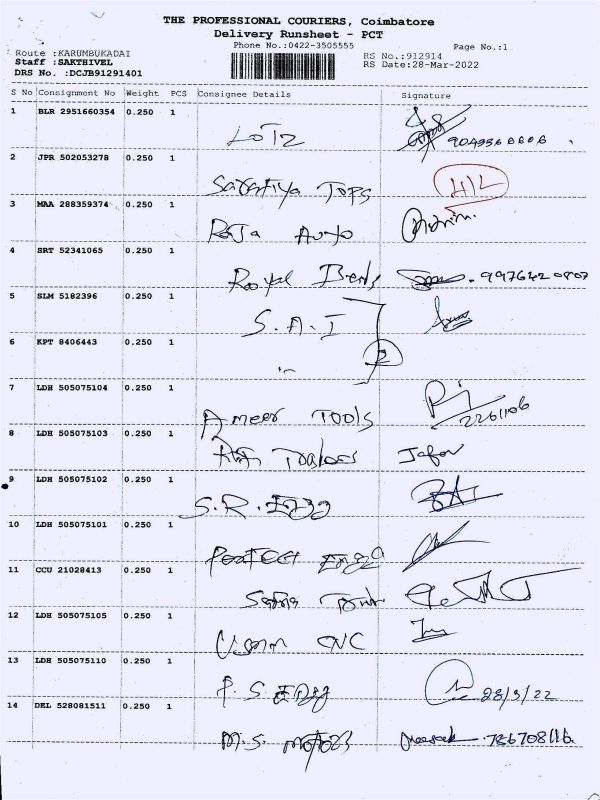 THE PROFESSIONAL COURIERS, Coimbatore
Delivery Runsheet - PCT
Phone No.:0422-3505555 Page No.:1
Route :KARUMBUKADAI RS No.:912914
Staff :SAKTHIVEL RS Date:28-Mar-2022
DRS No. :DCJB91291401
S No Consignment No Weight PCS Consignee Details Signature
1 BLR 2951660354 0.250 1
LOTZ
2 JPR 502053278 0.250 1
Tops
3 MAA 288359374 0.250 1
Raja Auto
4 SRT 52341065 0.250 1
Royal
5 SLM 5182396 0.250 1
S.A.I
6 KPT 8406443 0.250 1
2
7 LDH 505075104 0.250 1
Ameer TOOLS
8 LDH 505075103 0.250 1
Jafar
9 LDH 505075102 0.250 1
S.R.Engg
10 LDH 505075101 0.250 1
Perfect Engg
11 CCU 21028413 0.250 1
12 LDH 505075105 0.250 1
CNC
13 LDH 505075110 0.250 1
P.S.Engg 28/3/22
14 DEL 528081511 0.250 1
M.S. Motors